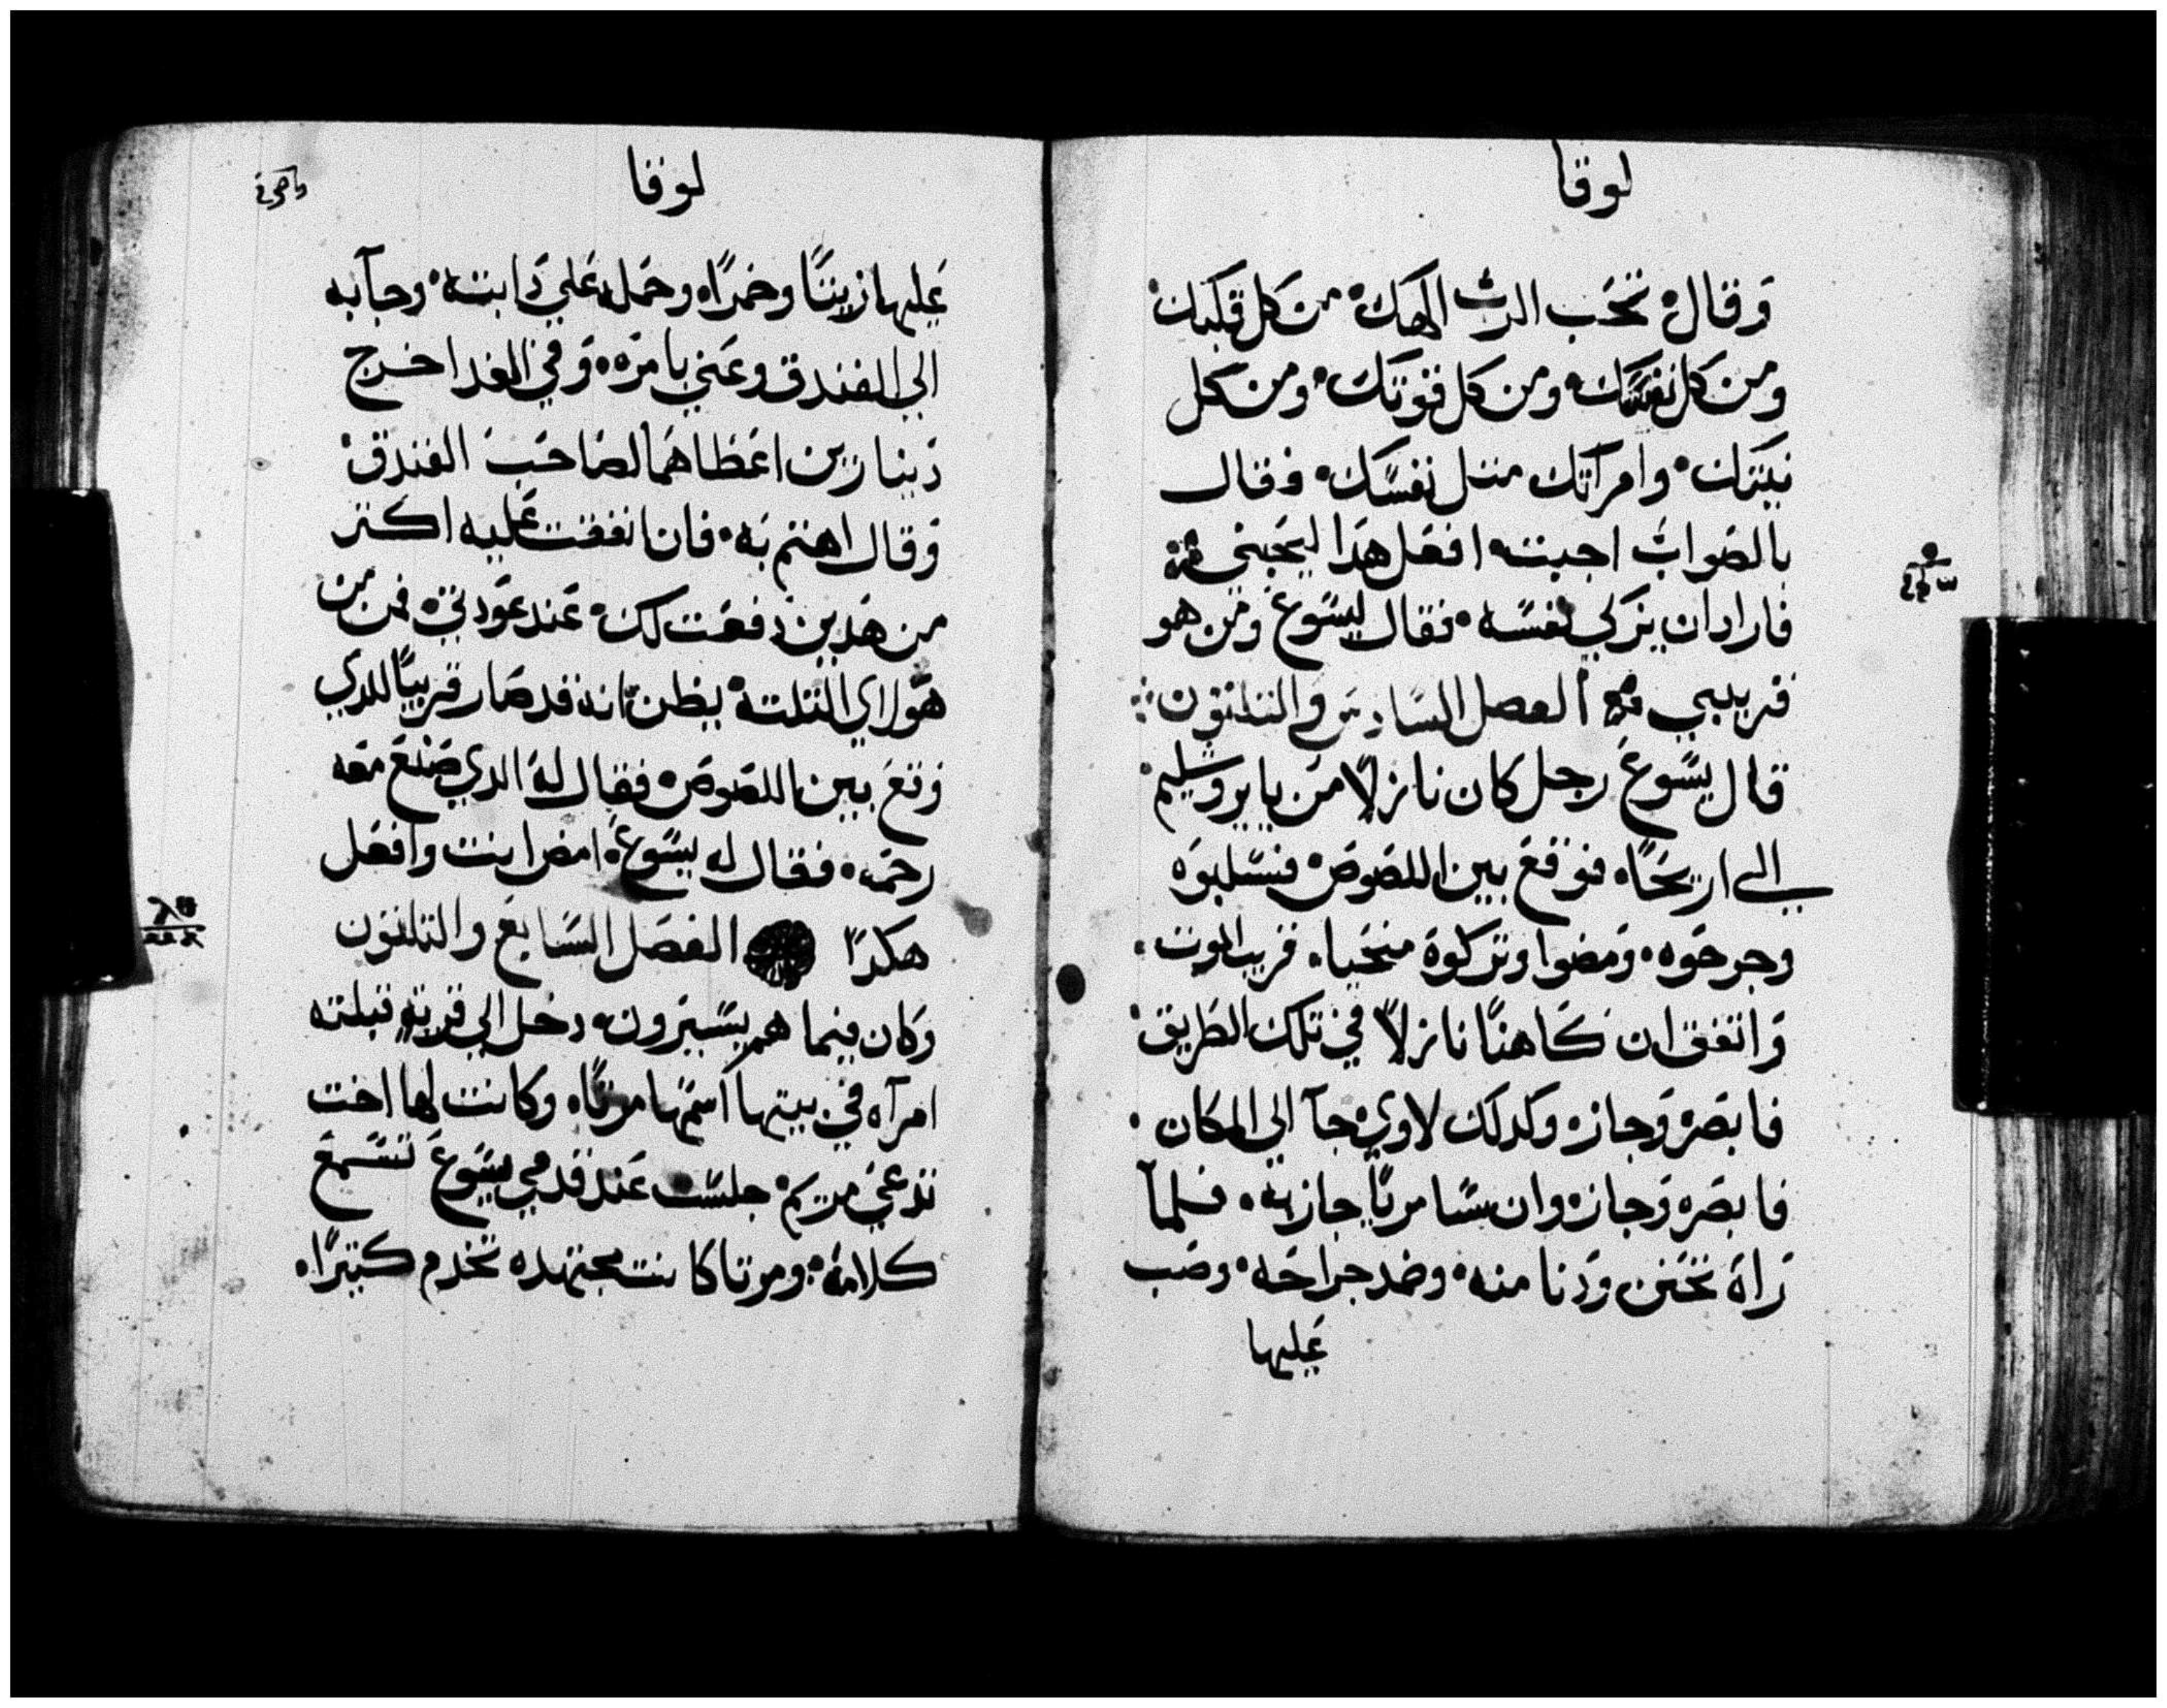 لوقا
وَقال تحَب الرب الهك من كل قلبك
ومن كل نفسَّك ومن كل قوتك ومن كل
نيتك وامراتك متل نفسَّك فقال
بالصَواب اجبته افعَل هَدا ليحَيى
فاراد ان يزكي نفسَّه فقال ليسَّوعَ ومَن هو
قريبي الفصل السَّادس والتلتون
قال يسَّوعَ رجل كان نازلًا من يايروشليم
الى اريحَا فوقعَ بين اللصَوصَ فسَّلبوَه
وجرحَوه ومَضوا وتركوة منحَيا قريب الموت
وَاتفق ان كَاهنًا نازلًا في تلك الطَريق
فابصَرة وَجازه وكدلك لاوي جآ الي المكان
فابصَره وَجازه وان سَّامريًا جاز به فلمآ
رَاة تحَنن وَدنا منه وضمد جراحَه وصَب
عَليها
لوقا
عَليها زيتًا وخمرًا وحمَله عَلي دَابته وجآبه
الي الفندق وعَني بامرَه وَفي الغد اخرج
دَينارين اعَطاهَما لصَاحَب الفندق
وَقال اهتم بَه فان انفقت عَليه اكتر
من هَدين دفعَت لك عَند عَودتي فمن من
هَولاي التلتة يظن انه قد صَار قريبًا للدي
وَقعَ بين اللصَوصَ فقال لهَ الدي صَنعَ معَه
رحمَه فقال له يسَّوعَ امض انت وافعَل
هكدًا الفصَل السَّابعَ والتلتون
وَكان فيما هم يسَّيرون دخل الي قرية فبلته
امرآه في بيتها اسَّمها مرتا وكانت لها اخت
تدعَي مريم جلسَّت عَند قدمي يسَّوعَ تسَّمعَ
كلامه ومرتا كانت مجتهده تخدم كتيرًا